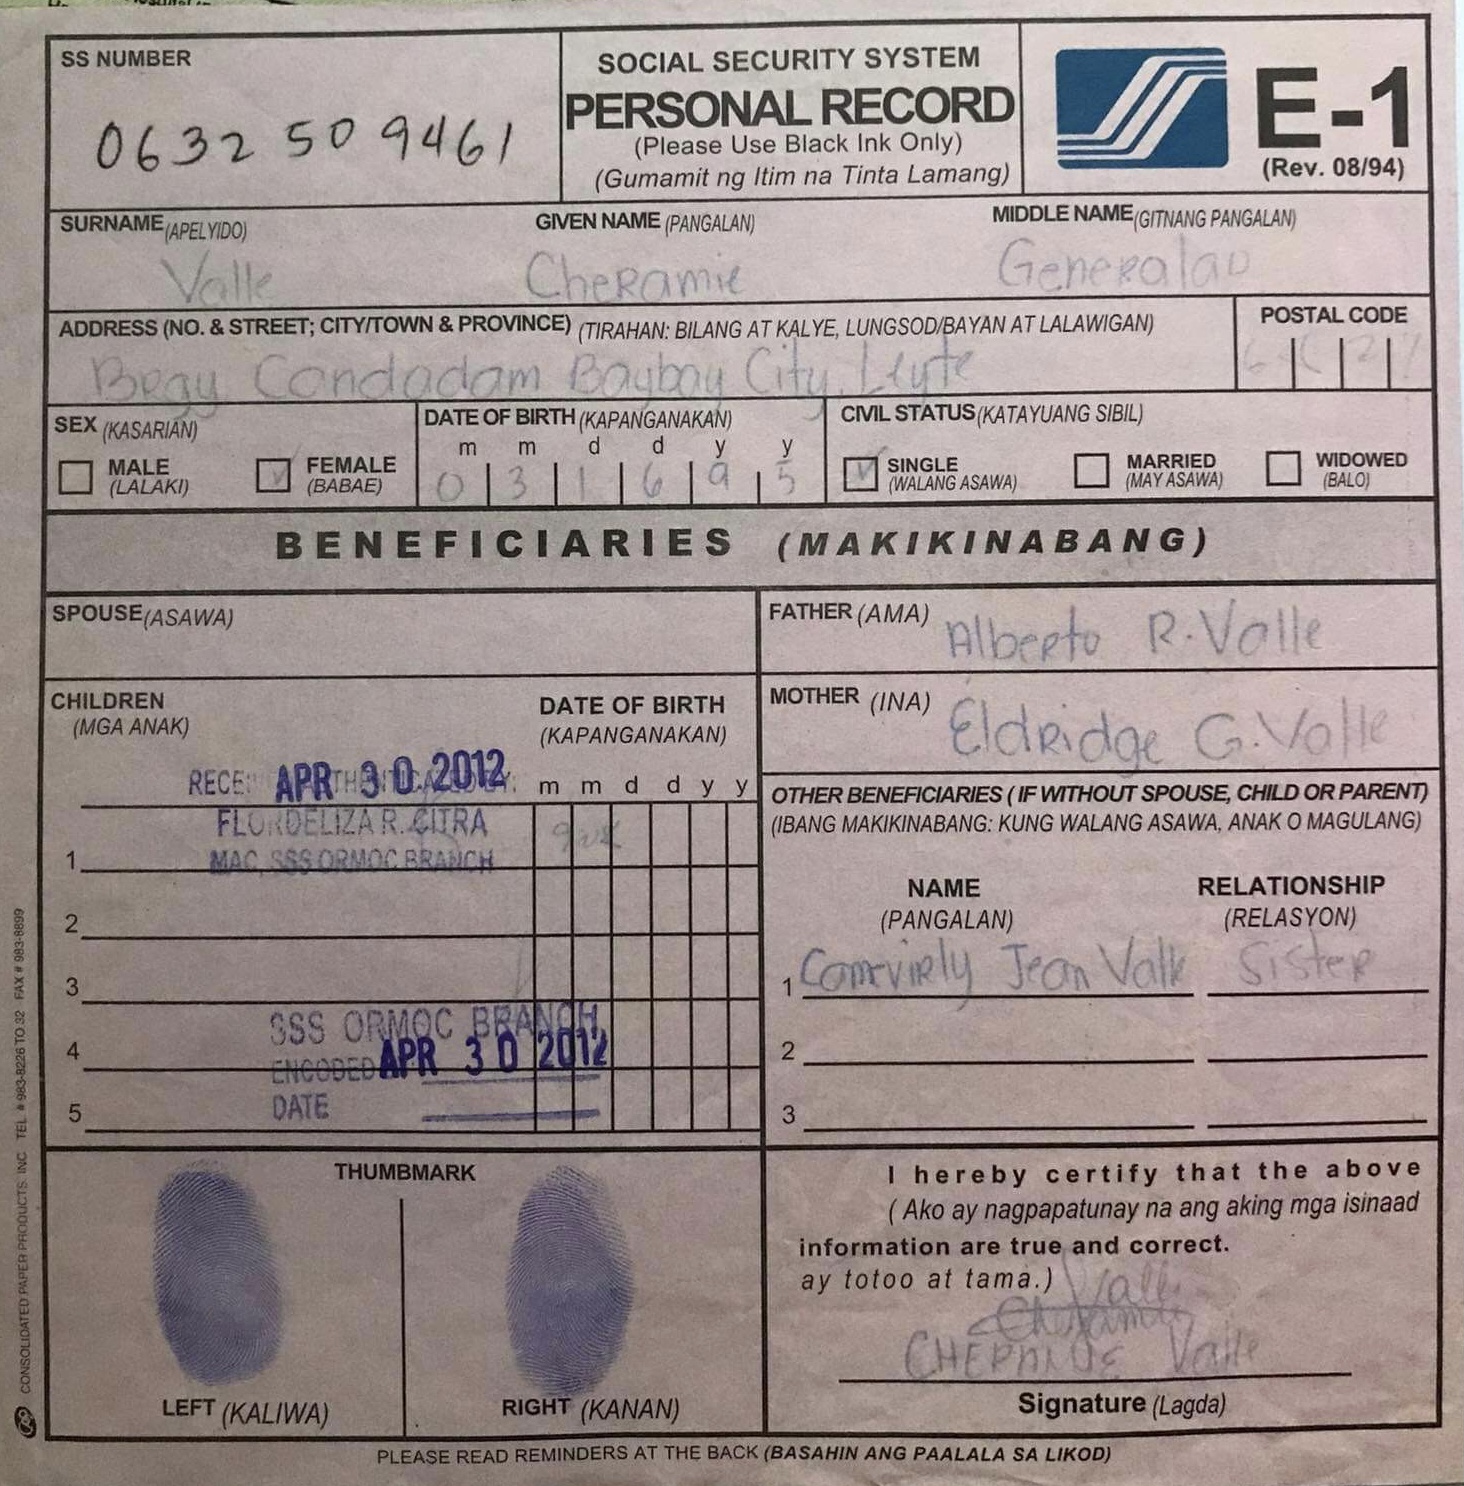 SS NUMBER
0632509461
SOCIAL SECURITY SYSTEM
PERSONAL RECORD
(Please Use Black Ink Only)
(Gumamit ng Itim na Tinta Lamang)
E-1
(Rev. 08/94)
SURNAME (APELYIDO) GIVEN NAME (PANGALAN) MIDDLE NAME (GITNANG PANGALAN)
Valle Cheramie Generalao
ADDRESS (NO. & STREET; CITY/TOWN & PROVINCE) (TIRAHAN: BILANG AT KALYE, LUNGSOD/BAYAN AT LALAWIGAN) POSTAL CODE
Brgy Candadam Baybay City, Leyte
SEX (KASARIAN)
MALE (LALAKI)
FEMALE (BABAE)
DATE OF BIRTH (KAPANGANAKAN)
m m d d y y
0 3 1 6 9 5
CIVIL STATUS (KATAYUANG SIBIL)
SINGLE (WALANG ASAWA)
MARRIED (MAY ASAWA)
WIDOWED (BALO)
BENEFICIARIES (MAKIKINABANG)
SPOUSE (ASAWA)
FATHER (AMA) Alberto R. Valle
MOTHER (INA) Eldridge G. Valle
CHILDREN (MGA ANAK)
DATE OF BIRTH (KAPANGANAKAN)
APR 30 2012
m m d d y y
FLORDELIZA R. CITRA
MAC, SSS ORMOC BRANCH
1
2
3
SSS ORMOC BRANCH
4
ENCODED APR 30 2012
5
DATE
OTHER BENEFICIARIES (IF WITHOUT SPOUSE, CHILD OR PARENT)
(IBANG MAKIKINABANG: KUNG WALANG ASAWA, ANAK O MAGULANG)
NAME RELATIONSHIP
(PANGALAN) (RELASYON)
1 Jean Valle Sister
2
3
THUMBMARK
LEFT (KALIWA)
RIGHT (KANAN)
I hereby certify that the above
(Ako ay nagpapatunay na ang aking mga isinaad
information are true and correct.
ay totoo at tama.)
Valle
Valle
Signature (Lagda)
PLEASE READ REMINDERS AT THE BACK (BASAHIN ANG PAALALA SA LIKOD)
CONSOLIDATED PAPER PRODUCTS INC TEL # 983-8226 TO 32 FAX # 983-8899